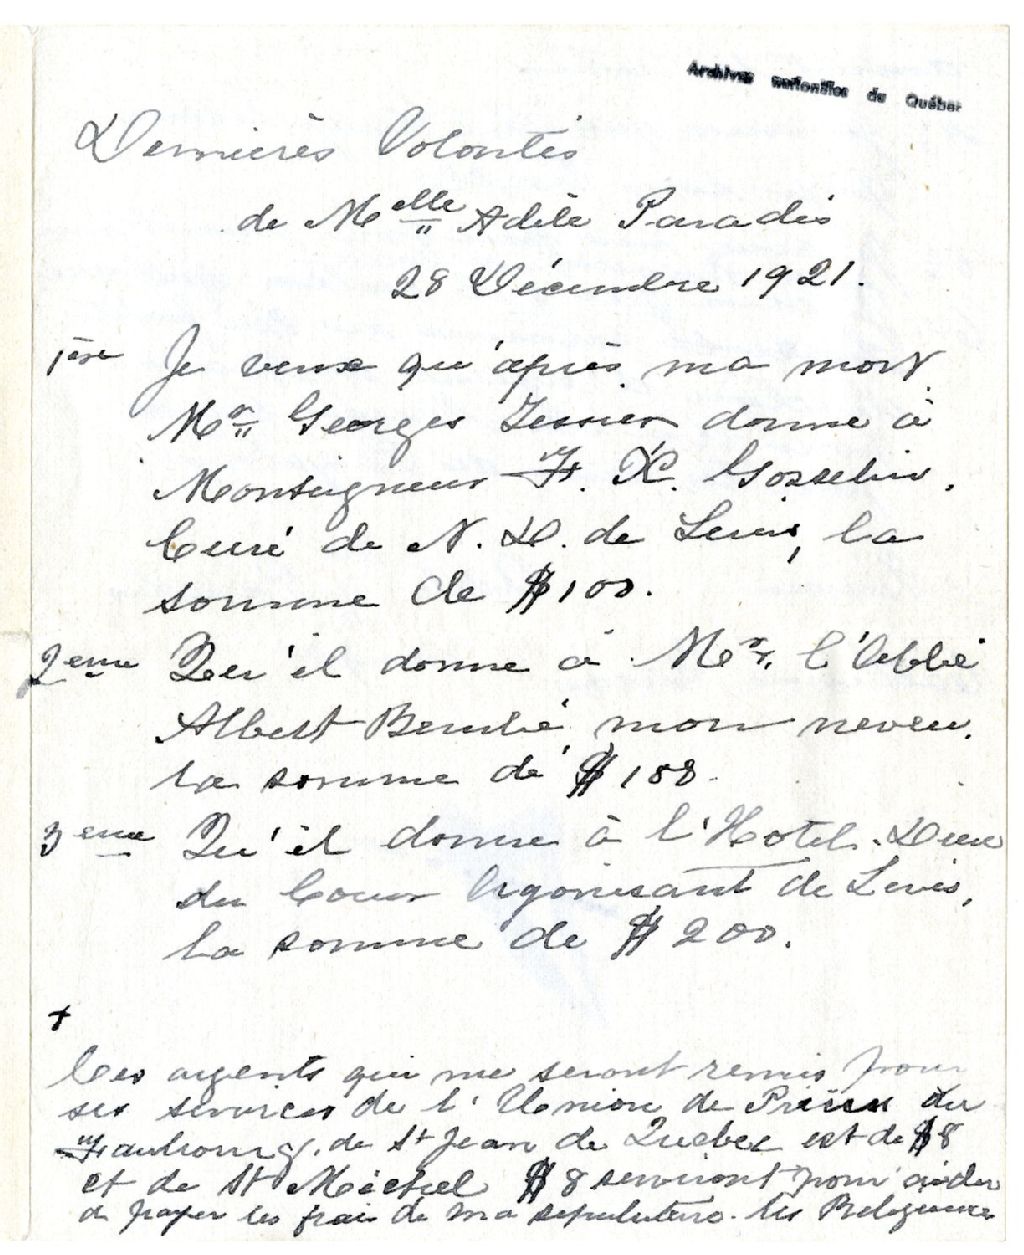 Archives nationales du Québec
Dernières Volontés
de Melle Adèle Paradis
28 Décembre 1921.
1ère Je veux qu'après ma mort
Mr Georges Tessier donne à
Monseigneur F. X. Gosselin,
Curé de N. D. de Levis, la
somme de $100.
2eme Qu'il donne à Mr l'Abbé
Albert Bérubé, mon neveu,
la somme de $100.
3eme Qu'il donne à l'Hotel-Dieu
du Coeur Agonisant de Levis,
la somme de $200.
+
Les argents qui me seront remis pour
ses services de l'Union de Prières du
Faubourg de St Jean de Quebec est de $8
et de St Michel $8 serviront pour aider
a payer les frais de ma sepulture. les Religieuses